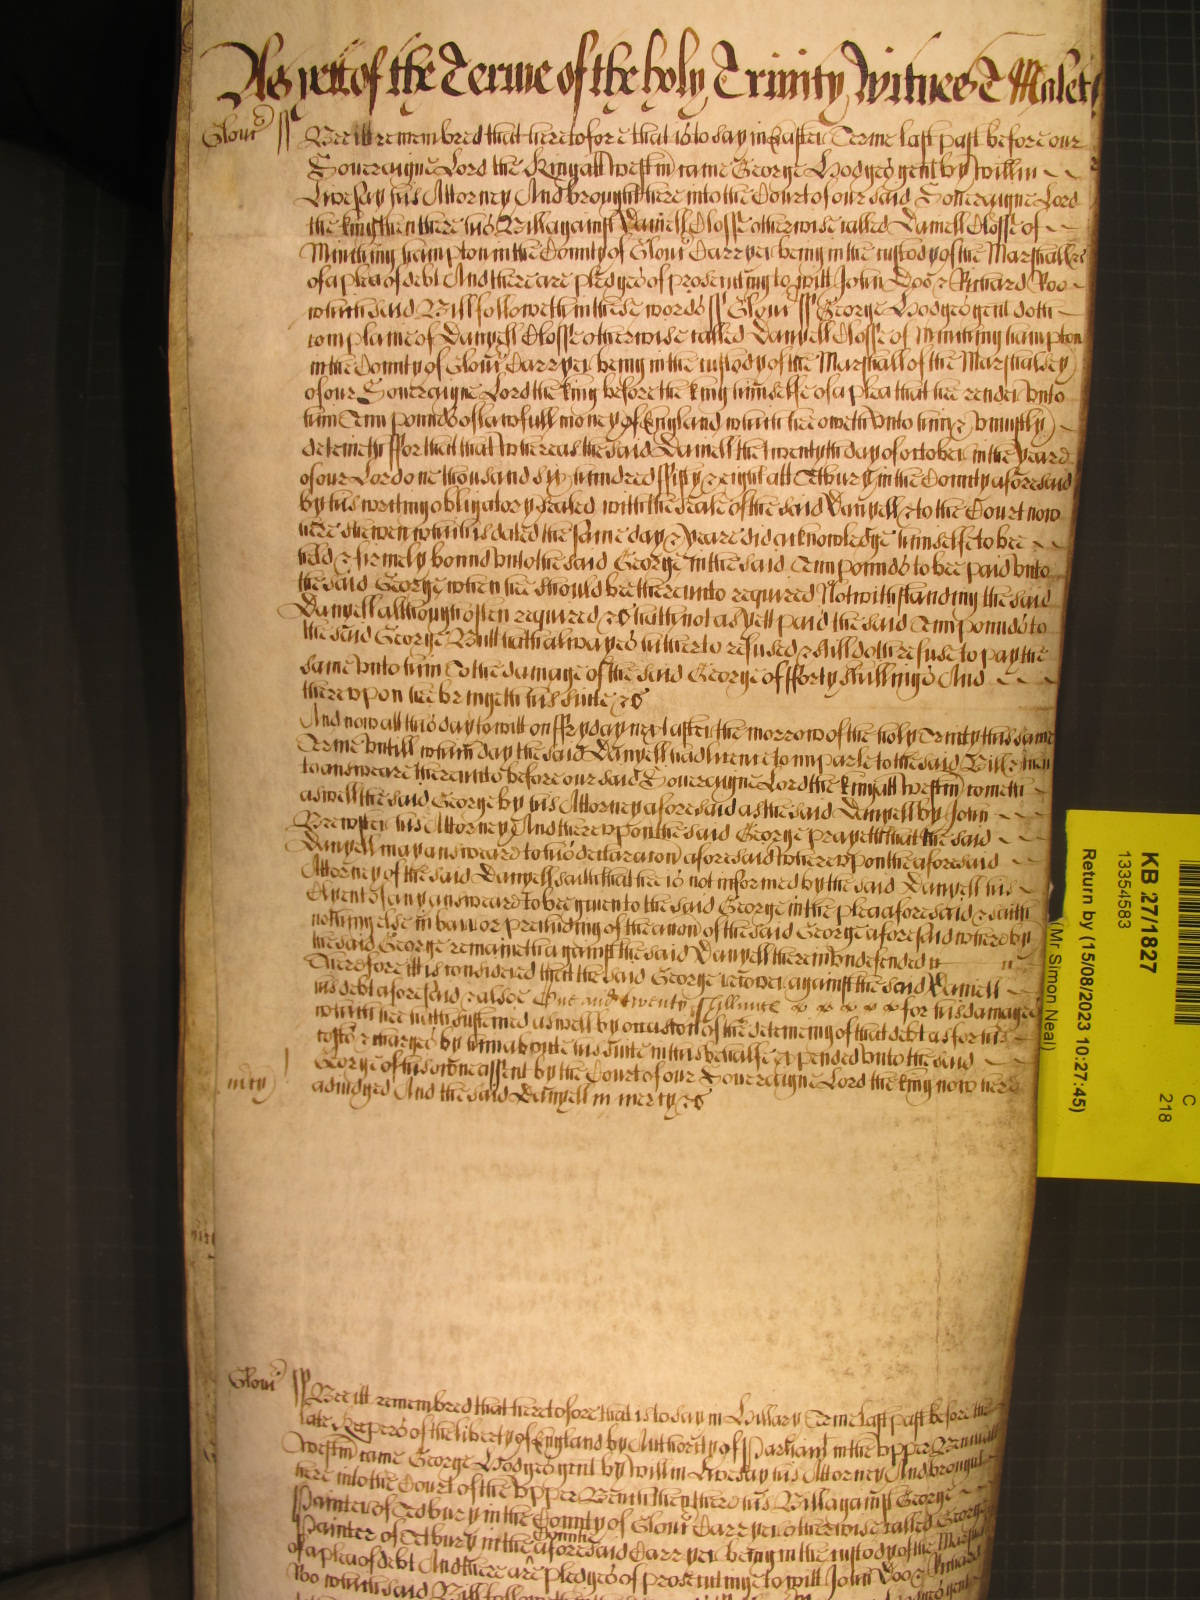 As yett of the Terme of the holy Trinity Witnes T Malet
Glouc ss Bee itt remembred that heretofore that is to say in Easter Terme last past before our
Soveraigne Lord the King att Westm came George Hodges gent by Willm
Livesay his Attorney And brought here into the Court of our said Soveraigne Lord
the king then there his Bill against Daniell Closse otherwise called Daniell Closse of
Minching hampton in the County of Glouc Carryer being in the custody of the Marshall &c
of a plea of debt And there are pledges of prosecuting to witt John Doo & Richard Roo
which said Bill followeth in these words ss Glouc ss George Hodges gent doth
complaine of Danyell Closse otherwise called Danyell Closse of Minching hampton
in the County of Glouc Carryer being in the custody of the Marshall of the Marshalsey
of our Soveraigne Lord the king before the king himselfe of a plea that hee render unto
him Tenn pounds of lawfull money of England which hee oweth unto him & uniustly
deteineth ffor that that whereas the said Daniell the twentyth day of october in the yeare
of our Lord one thousand six hundred ffifty & eight att Tetbury in the County aforesaid
by his writing obligatory sealed with the seale of the said Danyell & to the Court now
here shewen which is dated the same day & yeare did acknowledge himselfe to bee
held & firmely bound unto the said George in the said Tenn pounds to bee paid unto
the said George when hee should bee thereunto required Notwithstanding the said
Danyell although often required &c hath not as yett paid the said Tenn pounds to
the said George Butt hath alwayes hitherto refused & still doth refuse to pay the
same unto him To the damage of the said George of fforty shillings And
thereupon hee bringeth his suite &c
And now att this day to witt on ffryday next after the morrow of the holy Trinity this same
Terme untill which day the said Danyell had licence to imparle to the said Bill & then
to answeare thereunto before our said Soveraigne Lord the king att Westm cometh
aswell the said George by his Attorney aforesaid as the said Danyell by John
Brewster his Attorney And thereupon the said George prayeth that the said
Danyell may answeare to his declaracon aforesaid whereupon the aforesaid
Attorney of the said Danyell saith that hee is not informed by the said Danyell his
Clyent of any answeare to bee given to the said George in the plea aforesaid & saith
nothing else in barr or precluding of the accon of the said George aforesaid whereby
the said George remaineth against the said Danyell therein undefended
Therefore itt is considered that the said George recover against the said Daniell
his debt aforesaid & alsoe One and twenty shillings for his damages
which hee hath susteined aswell by occasion of the deteineing of that debt as for his
costs & charges by him about his suite in this behalfe expended unto the said
George of his owne assent by the Court of our Soveraigne Lord the king now here
mcy adiudged And the said Danyell in mercy &c
Glouc ss Bee itt remembred that heretofore that is to say in Hillary Terme last past before the
late Keepers of the liberty of England by Authority of Parliamt in the upper Bench att
Westm came George Hodges gent by Willm Livesay his Attorney And brought
here into the Court of the upper Bench then there his Bill against George
Painter of Tedbury in the County of Glouc Carryer otherwise called George
Painter of Tetbury in the Countie aforesaid Carryer being in the custody of the Marshall
of a plea of debt And there are pledges of prosecutinge to witt John Doo & Richard
Roo which said Bill